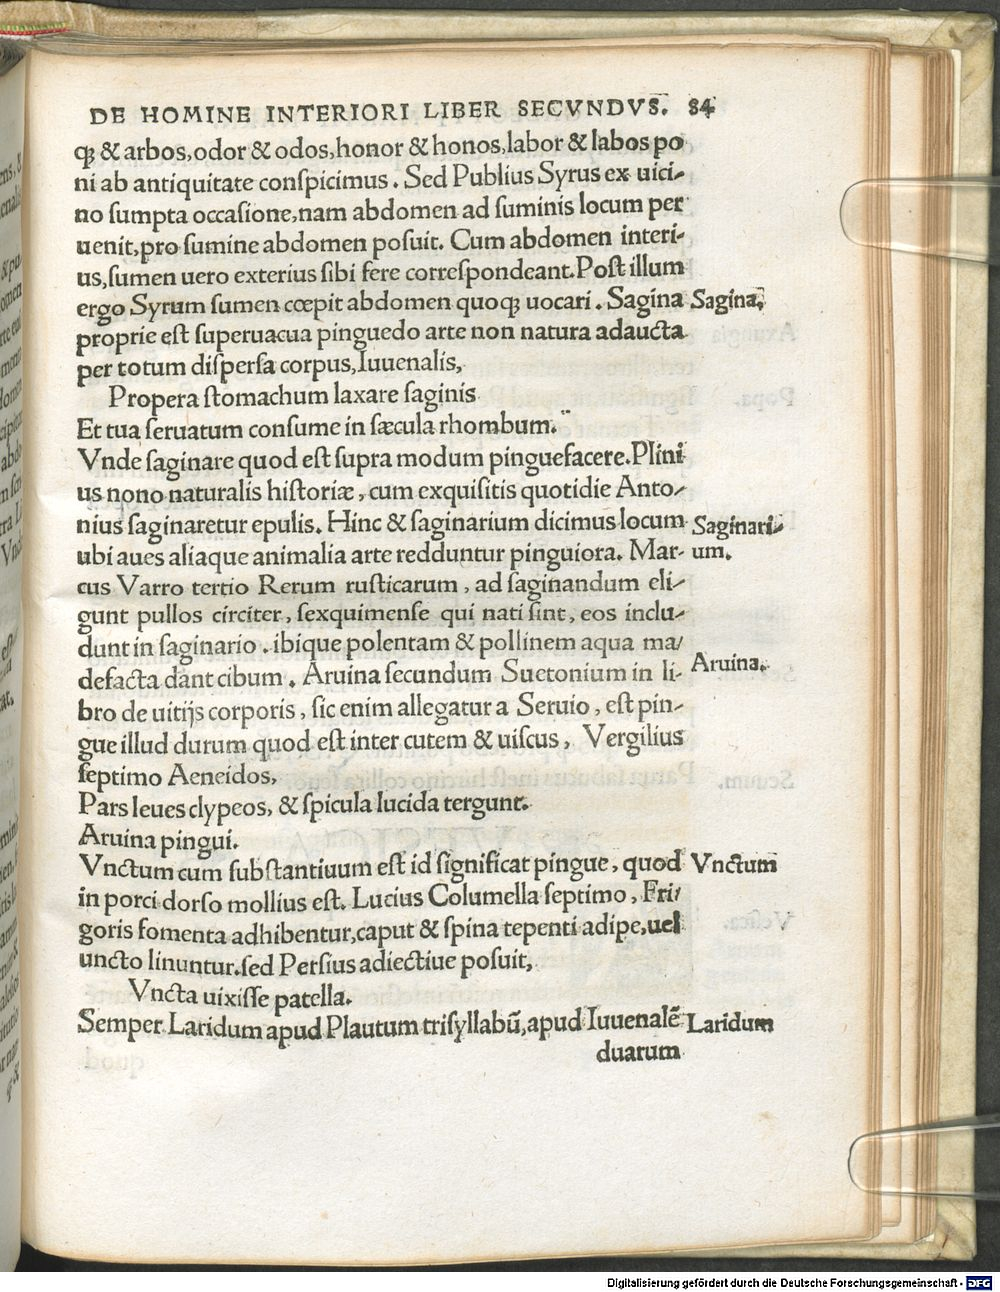 DE HOMINE INTERIORI LIBER SECVNDVS. 84
qꝫ & arbos, odor & odos, honor & honos, labor & labos po
ni ab antiquitate conspicimus. Sed Publius Syrus ex uici-
no sumpta occasione, nam abdomen ad suminis locum per
uenit, pro sumine abdomen posuit. Cum abdomen interi-
us, sumen uero exterius sibi fere correspondeant. Post illum
ergo Syrum sumen cœpit abdomen quoqꝫ uocari. Sagina Sagina.
proprie est superuacua pinguedo arte non natura adaucta
per totum dispersa corpus, Iuuenalis,
Propera stomachum laxare saginis
Et tua seruatum consume in sæcula rhombum.
Vnde saginare quod est supra modum pinguefacere. Plini
us nono naturalis historiæ, cum exquisitis quotidie Anto-
nius saginaretur epulis. Hinc & saginarium dicimus locum Saginari-
ubi aues aliaque animalia arte redduntur pinguiora. Mar- um.
cus Varro tertio Rerum rusticarum, ad saginandum eli-
gunt pullos circiter, sexquimense qui nati sint, eos inclu-
dunt in saginario. ibique polentam & pollinem aqua ma/
defacta dant cibum. Aruina secundum Suetonium in li- Aruina.
bro de uitijs corporis, sic enim allegatur a Seruio, est pin-
gue illud durum quod est inter cutem & uiscus, Vergilius
septimo Aeneidos,
Pars leues clypeos, & spicula lucida tergunt.
Aruina pingui.
Vnctum cum substantiuum est id significat pingue, quod Vnctum
in porci dorso mollius est. Lucius Columella septimo, Fri/
goris fomenta adhibentur, caput & spina tepenti adipe, uel
uncto linuntur. sed Persius adiectiue posuit,
Vncta uixisse patella.
Semper Laridum apud Plautum trisyllabū, apud Iuuenalē Laridum
duarum
Digitalisierung gefördert durch die Deutsche Forschungsgemeinschaft - DFG